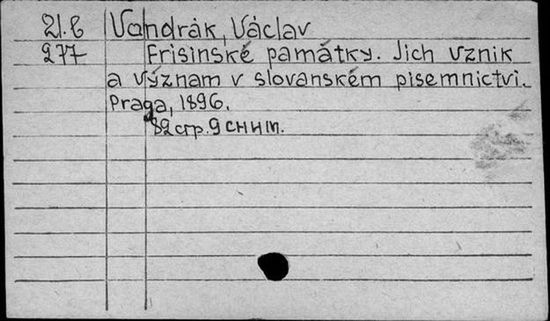 21.6 Vondrák, Václav
277 Frisinské památky. Jich vznik
a význam v slovanském písemnictvi.
Praga, 1896.
82 стр. 9 сним.